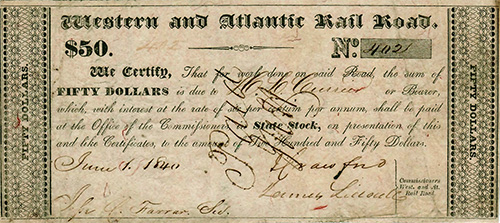 Western and Atlantic Rail Road.
$50. No. 402
We Certify, That for work done on said Road, the sum of
FIFTY DOLLARS is due to or Bearer,
which, with interest at the rate of six per centum per annum, shall be paid
at the Office of the Commissioners in State Stock, on presentation of this
and like Certificates, to the amount of Five Hundred and Fifty Dollars.
June 1, 1840
Crawford
James
Farrar, Sec.
Commissioners
West. and At.
Rail Road.
FIFTY DOLLARS.
FIFTY DOLLARS